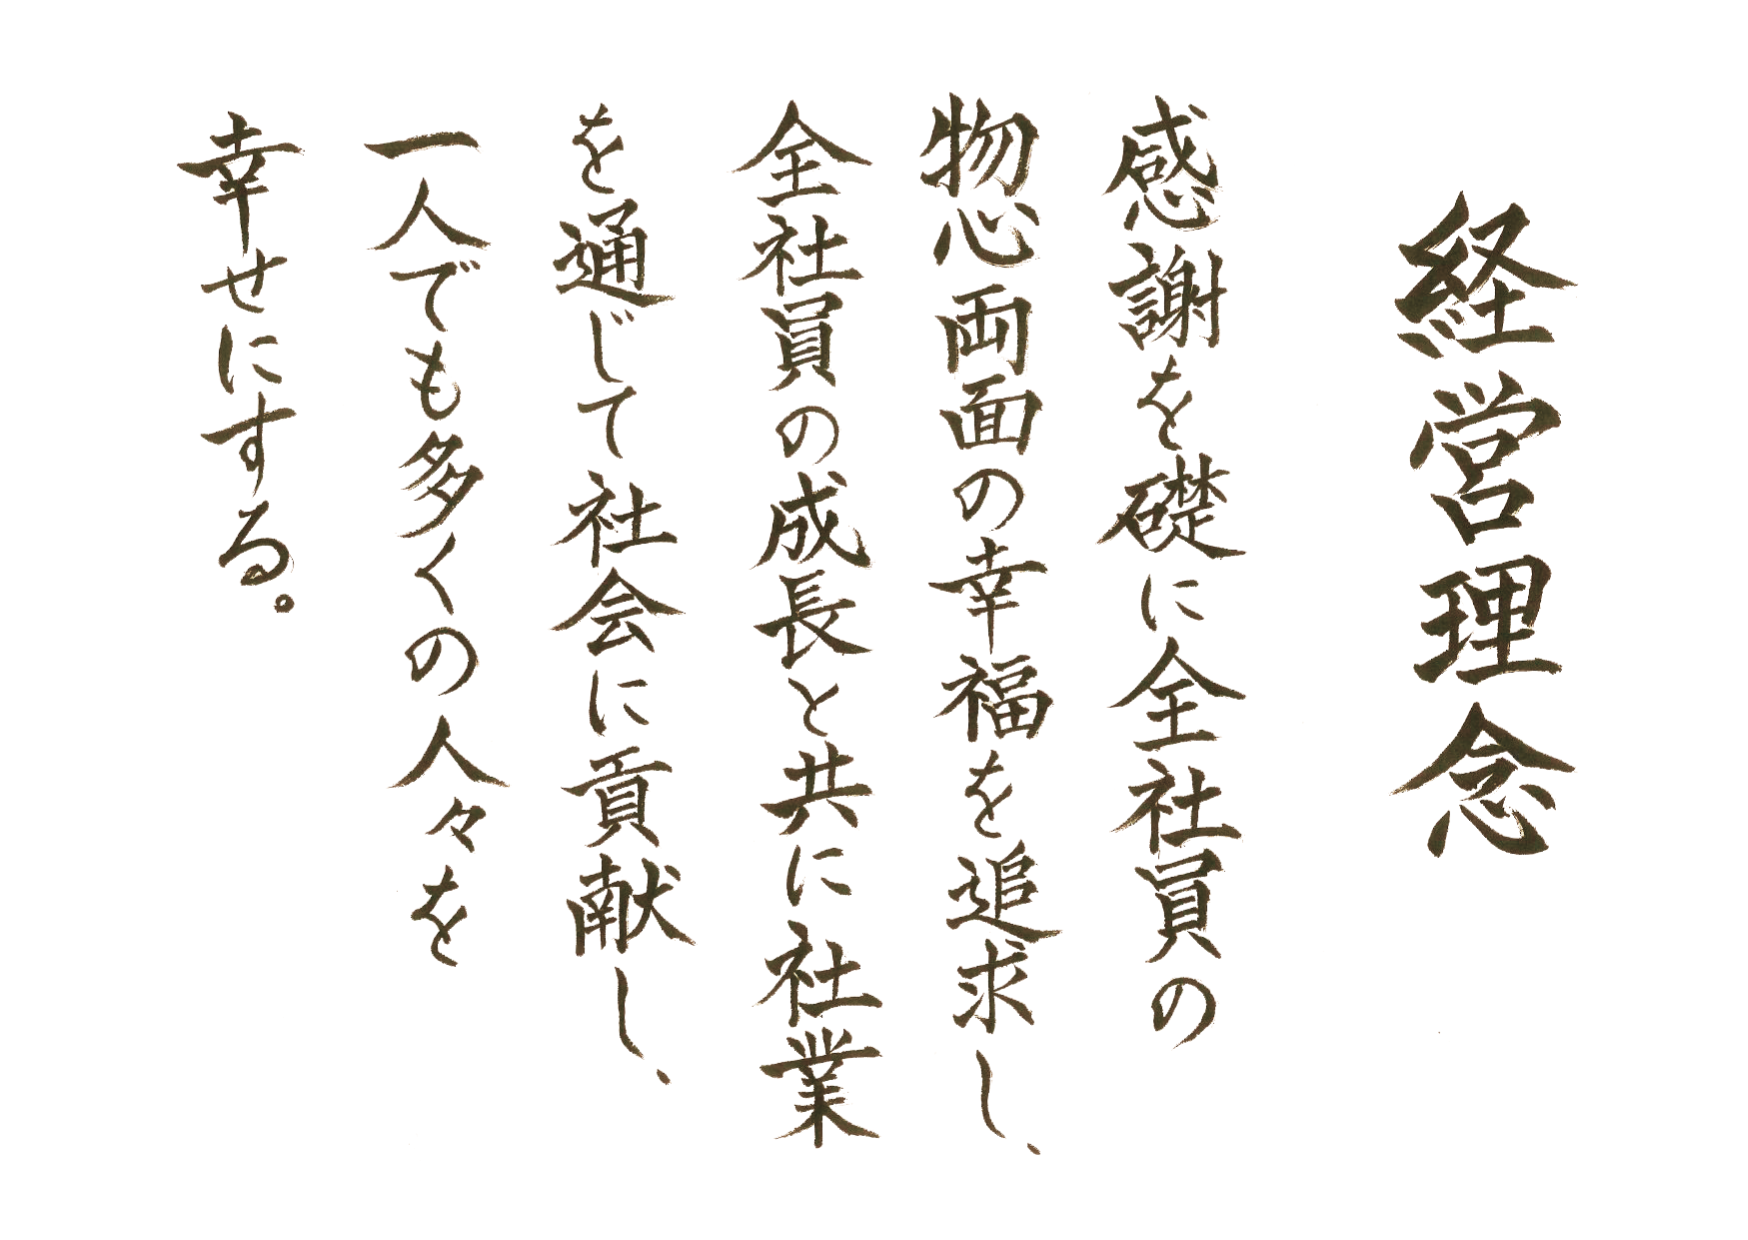 経営理念
感謝を礎に全社員の
物心両面の幸福を追求し、
全社員の成長と共に社業
を通じて社会に貢献し、
一人でも多くの人々を
幸せにする。